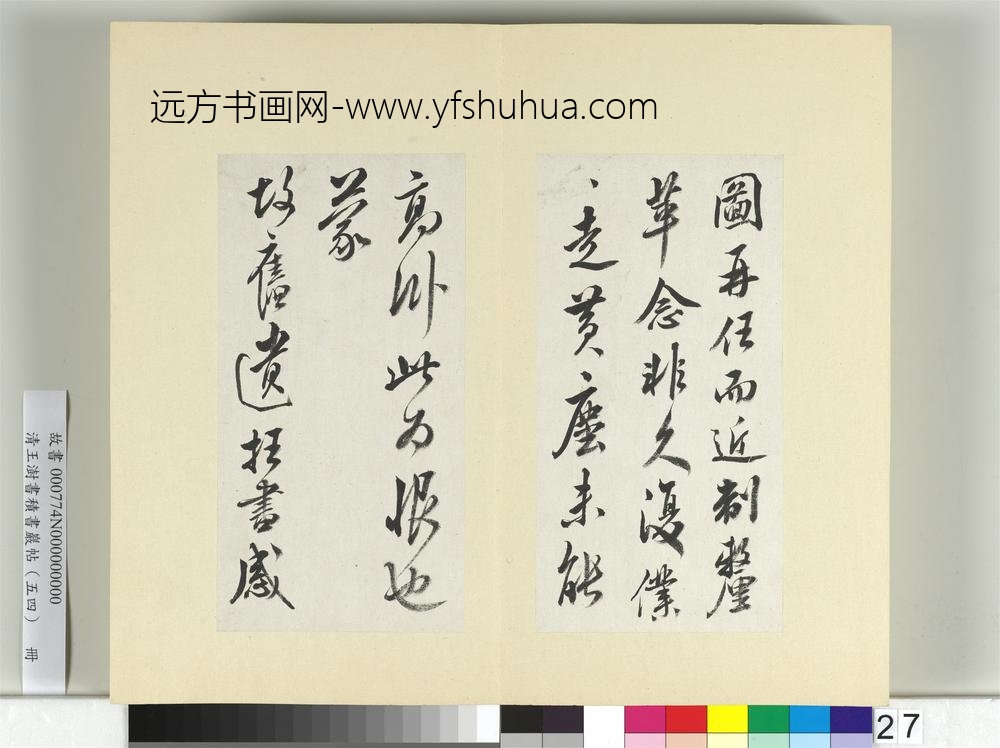 远方书画网-www.yfshuhua.com
圖再任而近制釐
革念非久復僕
、走黃塵未能
高卧此为恨也
蒙
故舊遺拄書感
故書 000774N000000000
清王澍書積書巖帖（五四） 冊
27